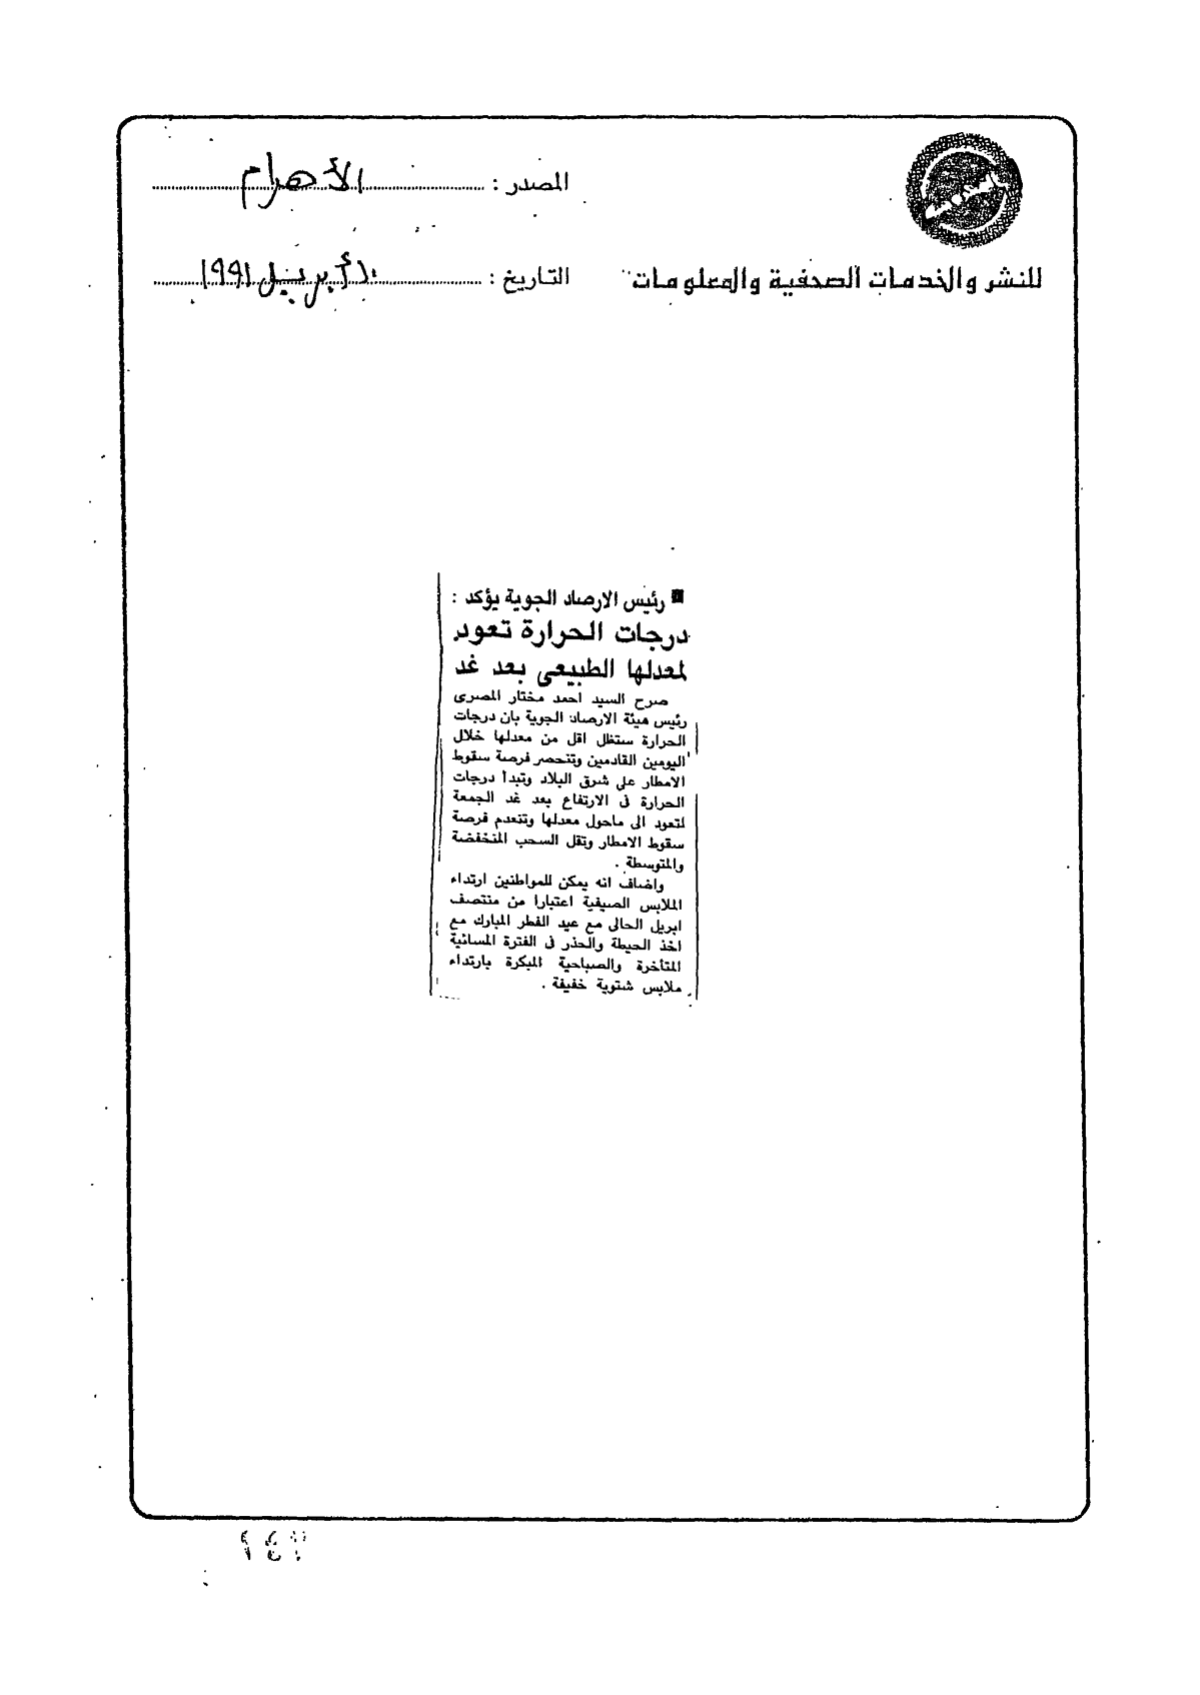 المصدر : الأهرام
للنشر والخدمات الصحفية والمعلومات
التاريخ : ١٠ أبريل ١٩٩١
رئيس الارصاد الجوية يؤكد :
درجات الحرارة تعود
لمعدلها الطبيعى بعد غد
صرح السيد احمد مختار المصرى
رئيس هيئة الارصاد الجوية بان درجات
الحرارة ستظل اقل من معدلها خلال
اليومين القادمين وتنحصر فرصة سقوط
الامطار على شرق البلاد وتبدأ درجات
الحرارة فى الارتفاع بعد غد الجمعة
لتعود الى ماحول معدلها وتنعدم فرصة
سقوط الامطار وتقل السحب المنخفضة
والمتوسطة .
واضاف انه يمكن للمواطنين ارتداء
الملابس الصيفية اعتبارا من منتصف
ابريل الحالى مع عيد الفطر المبارك مع
اخذ الحيطة والحذر فى الفترة المسائية
المتأخرة والصباحية المبكرة بارتداء
ملابس شتوية خفيفة .